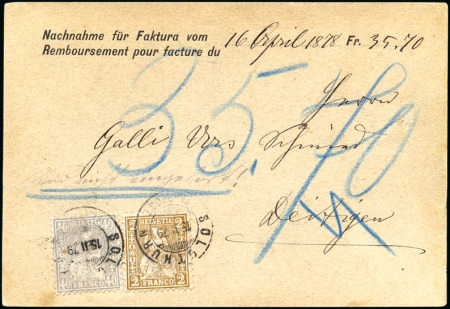 Nachnahme für Faktura vom
Remboursement pour facture du 16 April 1878 Fr. 35.70
35 70
Herrn
Galli Urs Schmied
Deitigen
HELVETIA HELVETIA
40 40 2 2
FRANCO FRANCO
15 II 79 SOLOTHURN